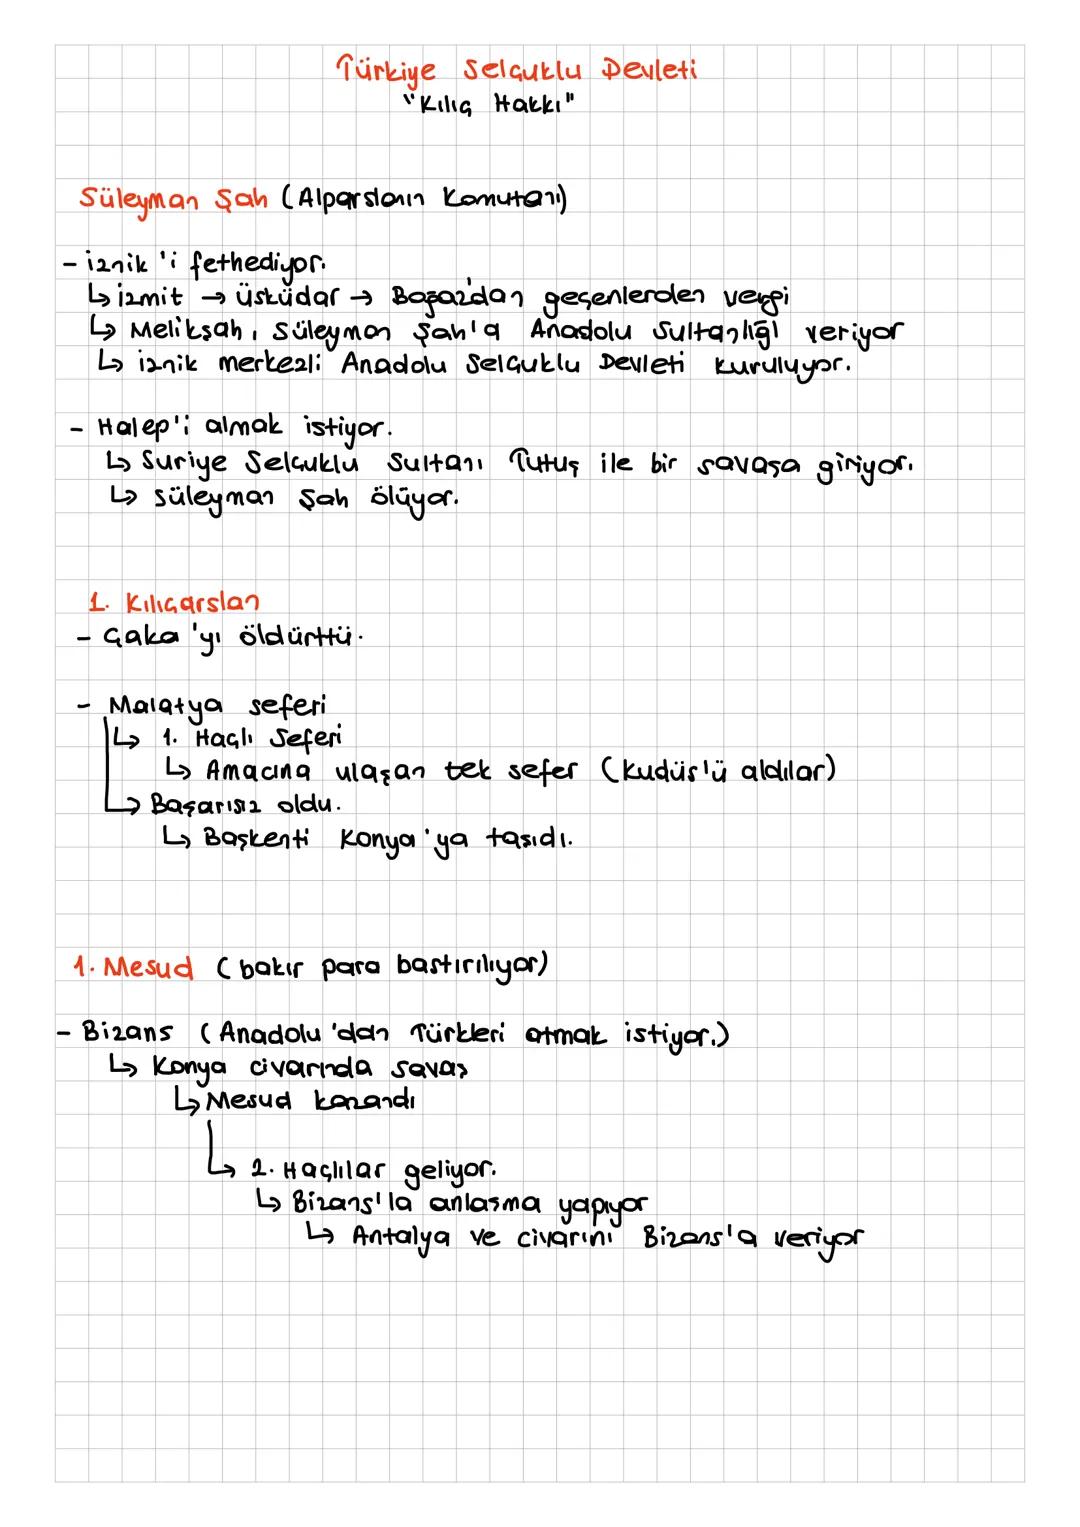 Türkiye Selçuklu Devleti
"Kılıç Hakkı"
Süleyman Şah (Alparslanın Komutanı)
- iznik 'i fethediyor.
↳ izmit → üsküdar → Boğaz'dan geçenlerden vergi
↳ Melikşah, Süleyman Şah'a Anadolu Sultanlığı veriyor
↳ iznik merkezli Anadolu Selçuklu Devleti kuruluyor.
- Halep'i almak istiyor.
↳ Suriye Selçuklu Sultanı Tutuş ile bir savaşa giriyor.
↳ süleyman Şah ölüyor.
1. Kılıçarslan
- Çaka 'yı öldürttü.
- Malatya seferi
↳ 1. Haçlı Seferi
↳ Amacına ulaşan tek sefer (kudüs'ü aldılar)
↳ Başarısız oldu.
↳ Başkenti Konya'ya taşıdı.
1. Mesud (bakır para bastırılıyor)
- Bizans (Anadolu'dan Türkleri atmak istiyor.)
↳ Konya civarında savaş
↳ Mesud kazandı
↳ 2. Haçlılar geliyor.
↳ Bizans'la anlaşma yapıyor
↳ Antalya ve civarını Bizans'a veriyor